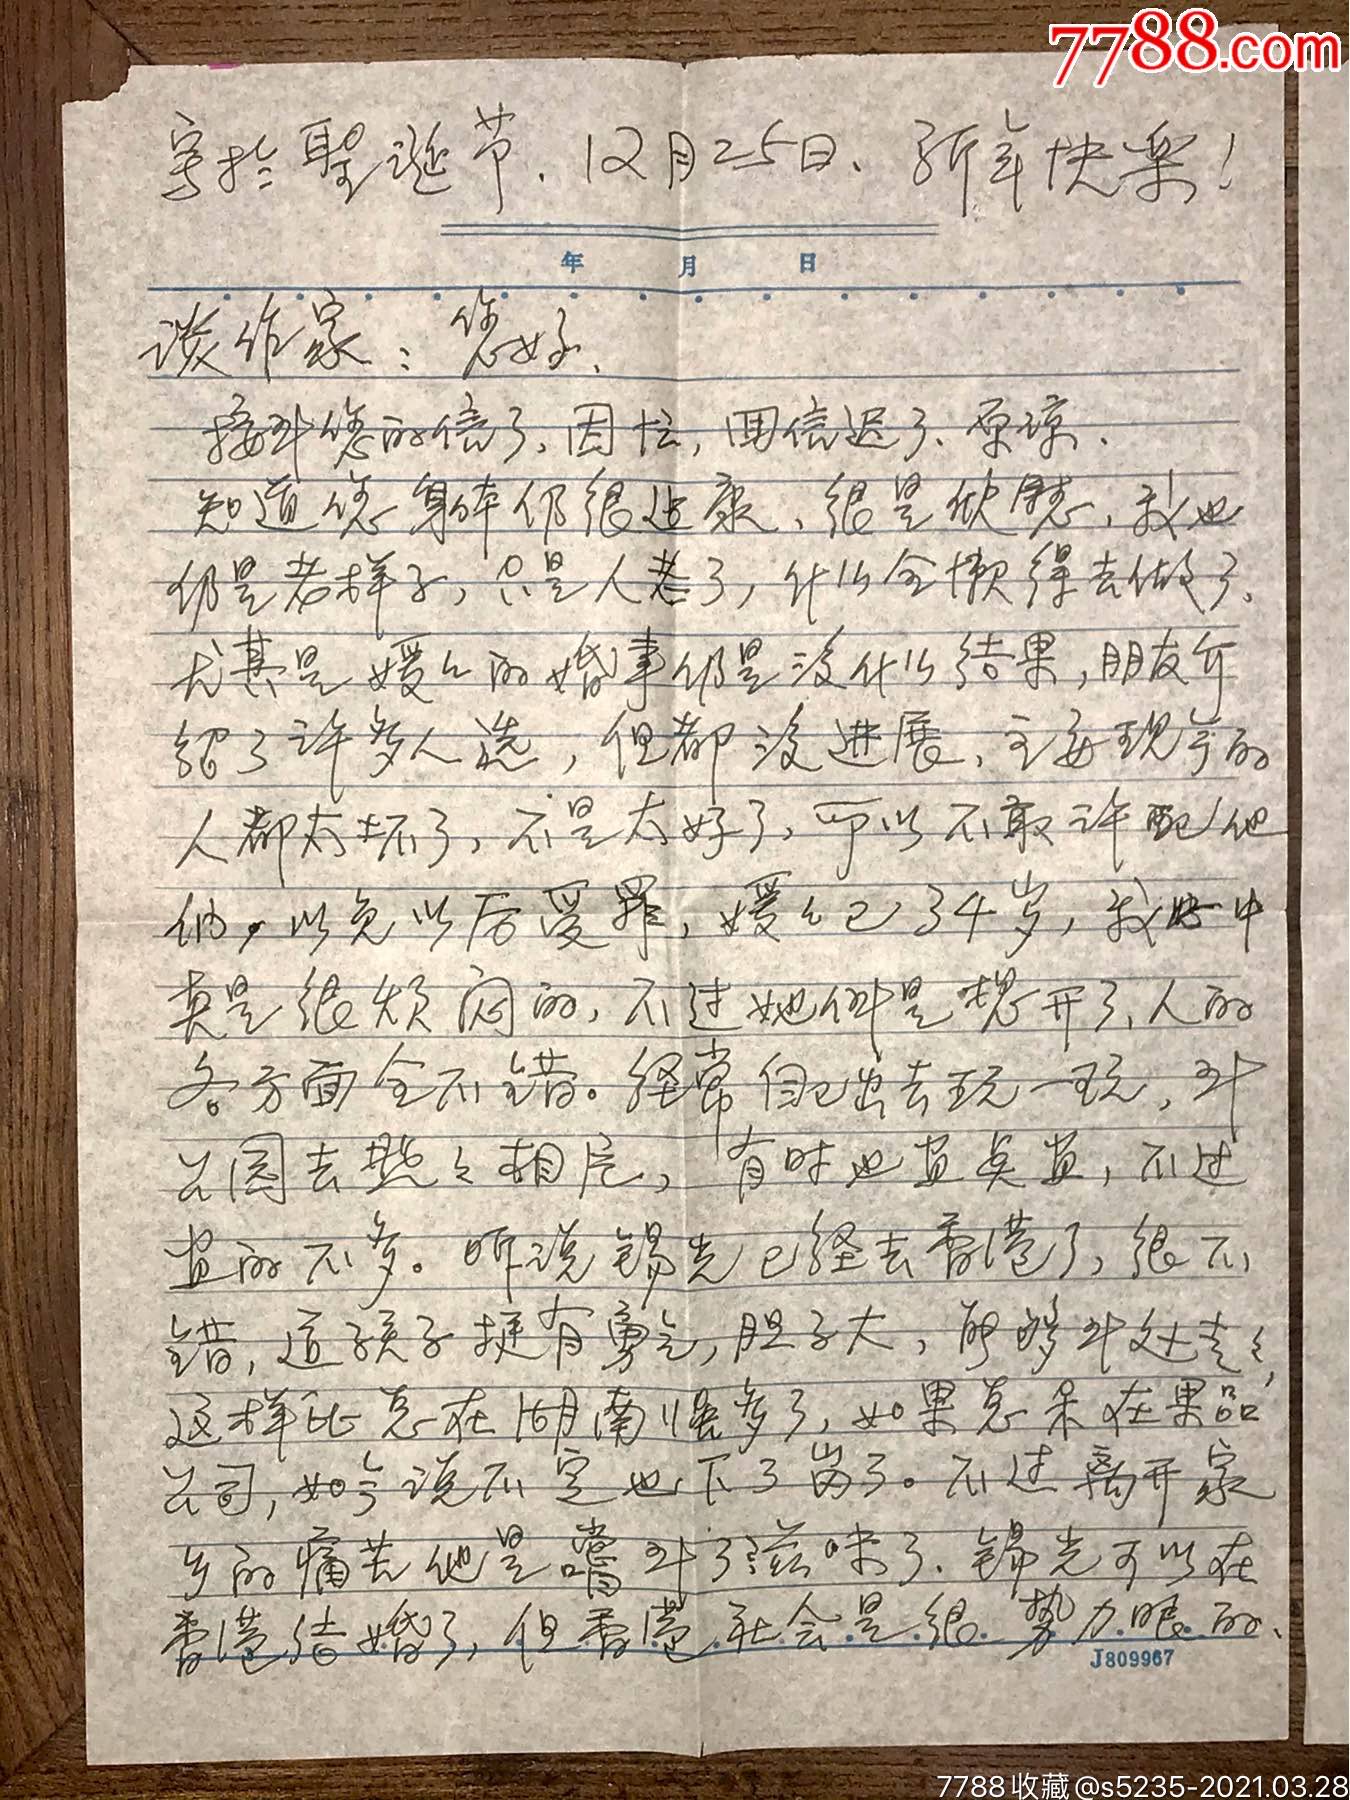 7788.com
写於聖诞节、12月25日、新年快楽！
年 月 日
谈作家：您好、
接到您的信了、因忙，回信迟了、原谅、
知道您身体仍很健康、很是欣慰，我也
仍是老样子，只是人老了，什么全懒得去做了、
尤其是媛々的婚事仍是没什么结果，朋友介
绍了许多人选，但都没进展、主要现今的
人都太坏了，不是太好了，所以不敢许配他
们，以免以后受罪，媛々已34岁，我心中
真是很烦闷的，不过她倒是想开了、人的
各方面全不错。经常自己出去玩一玩，到
公园去照々相片，有时也画点画，不过
画的不多。听说锡光已经去香港了，很不
错，这孩子挺有勇气，胆子大，能够到处走々，
这样比总在湖南强多了，如果总呆在果品
公司，如今说不定也下了岗了。不过离开家
乡的痛苦他是嚐到了滋味了、锡光可以在
香港结婚了，但香港社会是很势力眼的、
J809967
7788收藏@s5235-2021.03.28